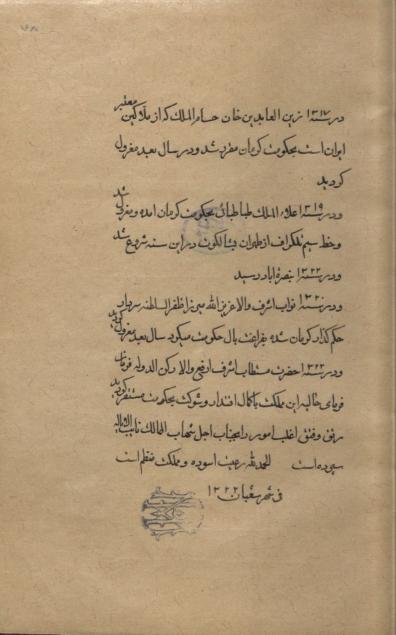 در سنه ۱۳۱۷ زین العابدین خان حسام الملک که از ملاکین معتبر
ایران است بحکومت کرمان مقرر شد و در سال بعد معزول
کردید
و در سنه ۱۳۱۹ علاء الملک طباطبائی بحکومت کرمان امده و معزول شد
و خط سیم تلکراف از طهران در این سنه شروع شد
و در ۱۳۲۲ بنصرة اباد رسید
و در سنه ۱۳۲۰ نواب اشرف والا عزیز الله میرزا ظفر السلطنه سردار
حکمکذار کرمان شده بفراغت بال حکومت میکرد سال بعد معزول کردید
و در سنه ۱۳۲۲ حضرت مستطاب اشرف ارفع والا رکن الدوله فرمان
فرمای حالیه این مملکت با کمال اقتدار و شوکت بحکومت مستقر کردید
رتق و فتق اغلب امور را بجناب اجل شهاب الممالک نایب الایاله
سپرده است الحمد لله رعیت اسوده و مملکت منظم است
فی شهر شعبان ۱۳۲۲